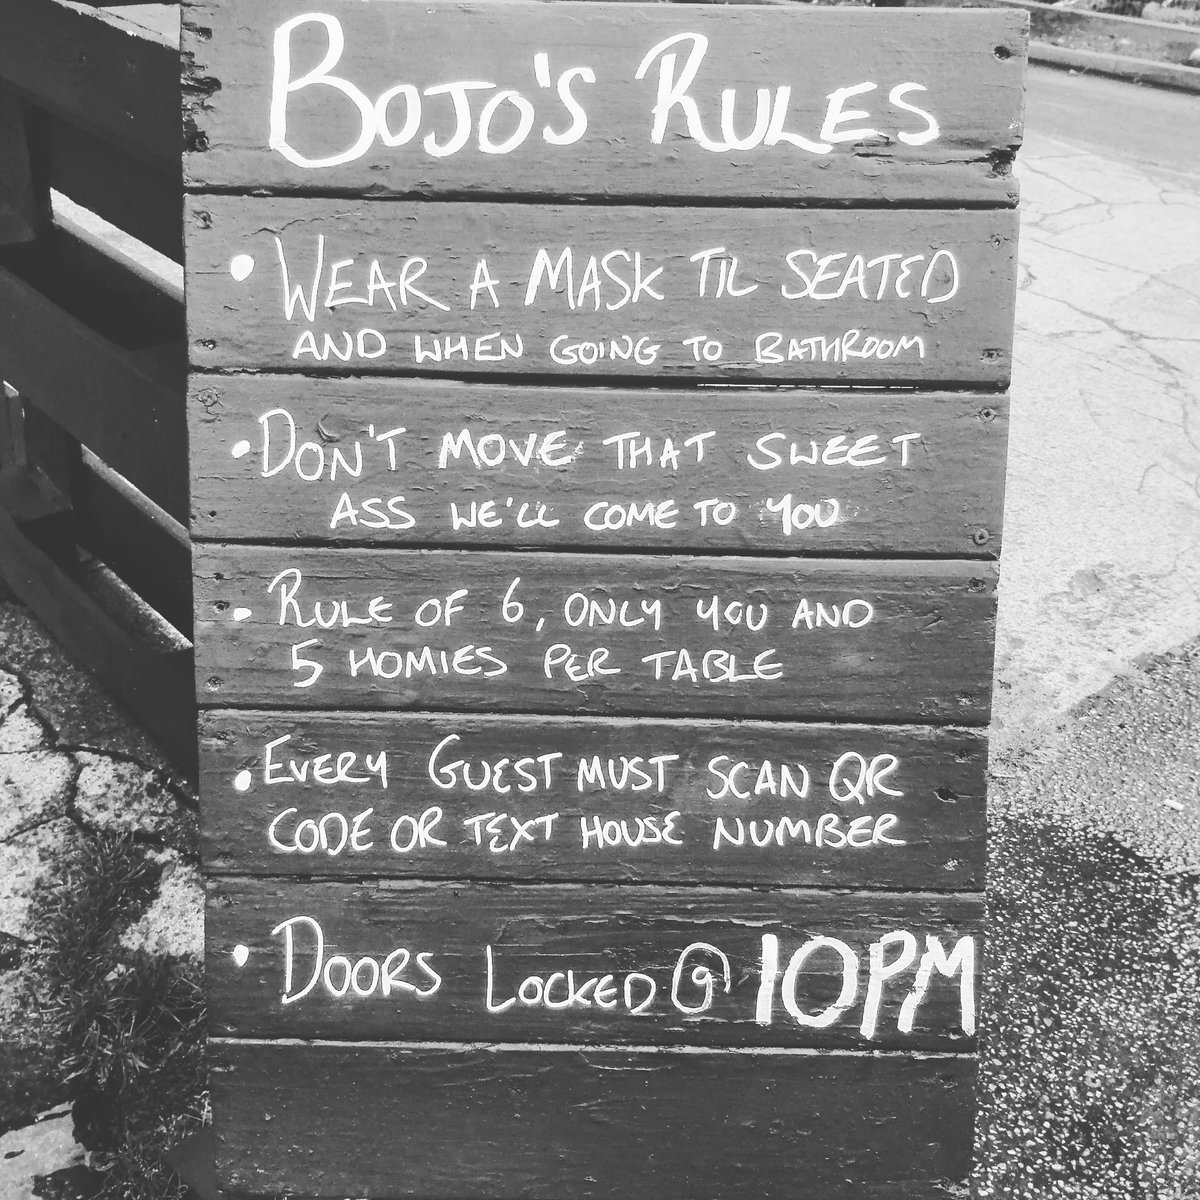 BOJO'S RULES
• WEAR A MASK TIL SEATED
AND WHEN GOING TO BATHROOM
• DON'T MOVE THAT SWEET
ASS WE'LL COME TO YOU
• RULE OF 6, ONLY YOU AND
5 HOMIES PER TABLE
• EVERY GUEST MUST SCAN QR
CODE OR TEXT HOUSE NUMBER
• DOORS LOCKED @ 10PM